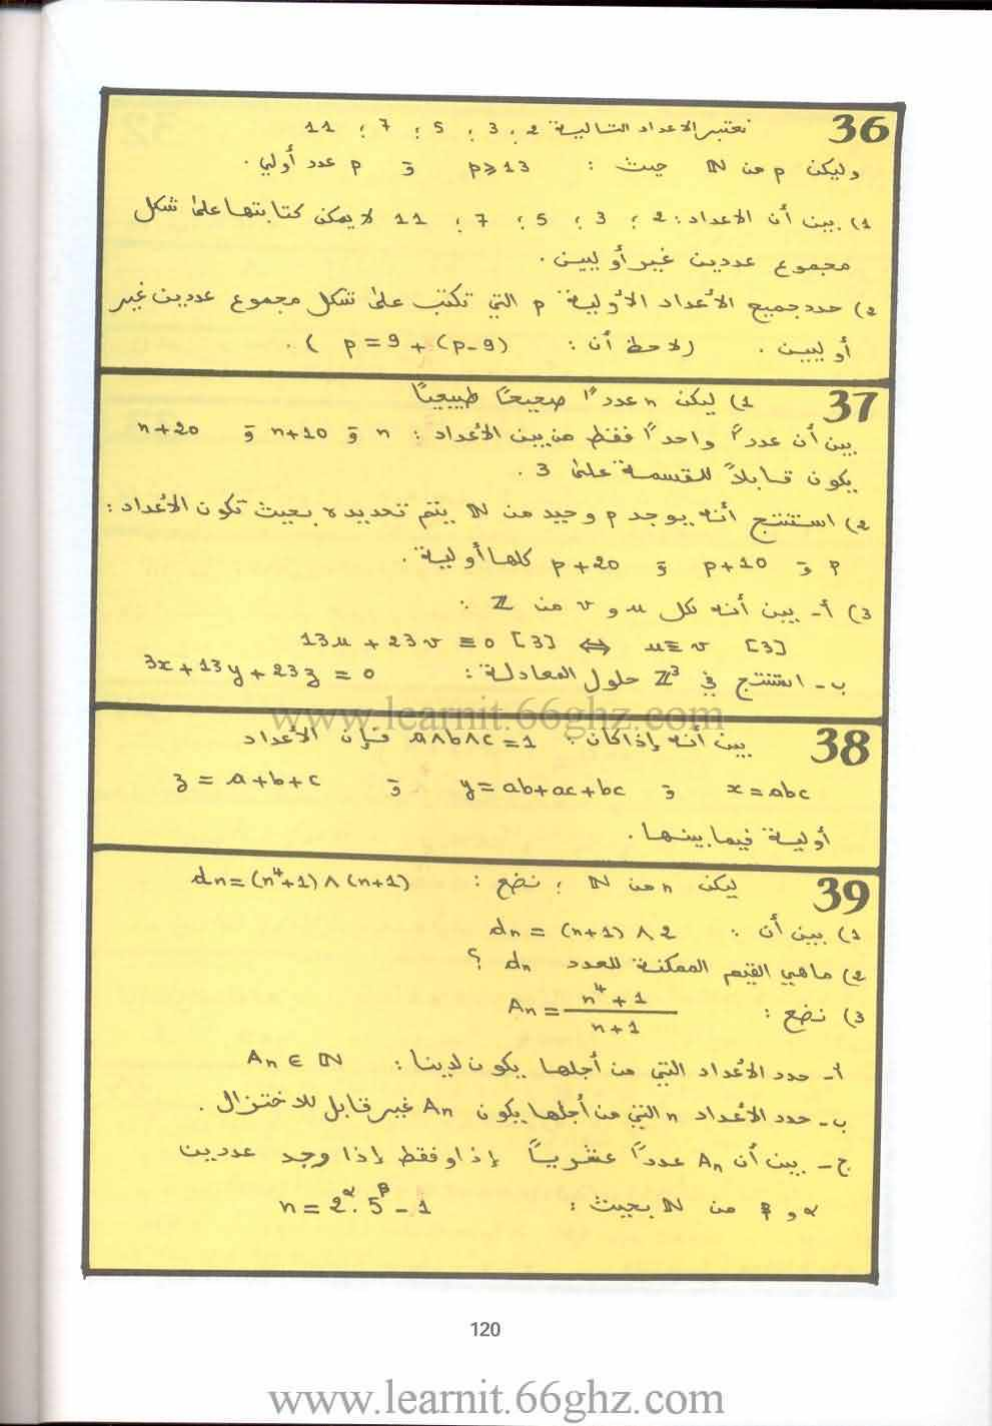 36
نعتبر الأعداد التالية 2 ؛ 3 ؛ 5 ؛ 7 ؛ 11
وليكن p من ℕ حيث : p ⩾ 13 و p عدد أولي .
1) بين أن الأعداد : 2 ؛ 3 ؛ 5 ؛ 7 ؛ 11 لا يمكن كتابتها على شكل
مجموع عددين غير أوليين .
2) حدد جميع الأعداد الأولية p التي تكتب على شكل مجموع عددين غير
أوليين . (لاحظ أن : p = 9 + (p-9) ) .
37
1) ليكن n عدداً صحيحاً طبيعياً
بين أن عدداً واحداً فقط من بين الأعداد : n و n+10 و n+20
يكون قابلاً للقسمة على 3 .
2) استنتج أنه يوجد p وحيد من ℕ يتم تحديده بحيث تكون الأعداد :
p و p+10 و p+20 كلها أولية .
3) أ- بين أنه لكل u و v من ℤ :
13u + 23v ≡ 0 [3] ⇔ u ≡ v [3]
ب- استنتج في ℤ³ حلول المعادلة : 3x + 13y + 23z = 0
www.learnit.66ghz.com
38
بين أنه إذا كان : a∧b∧c = 1 فإن الأعداد
x = abc و y = ab+ac+bc و z = a+b+c
أولية فيما بينها .
39
ليكن n من ℕ ؛ نضع : dn = (n⁴+1) ∧ (n+1)
1) بين أن : dn = (n+1) ∧ 2
2) ماهي القيم الممكنة للعدد dn ؟
3) نضع : An = (n⁴+1)/(n+1)
أ- حدد الأعداد التي من أجلها يكون لدينا : An ∈ ℕ
ب- حدد الأعداد n التي من أجلها يكون An غير قابل للاختزال .
ج- بين أن An عدداً عشرياً إذا وفقط إذا وجد عددين
α و β من ℕ بحيث : n = 2^α . 5^β - 1
120
www.learnit.66ghz.com